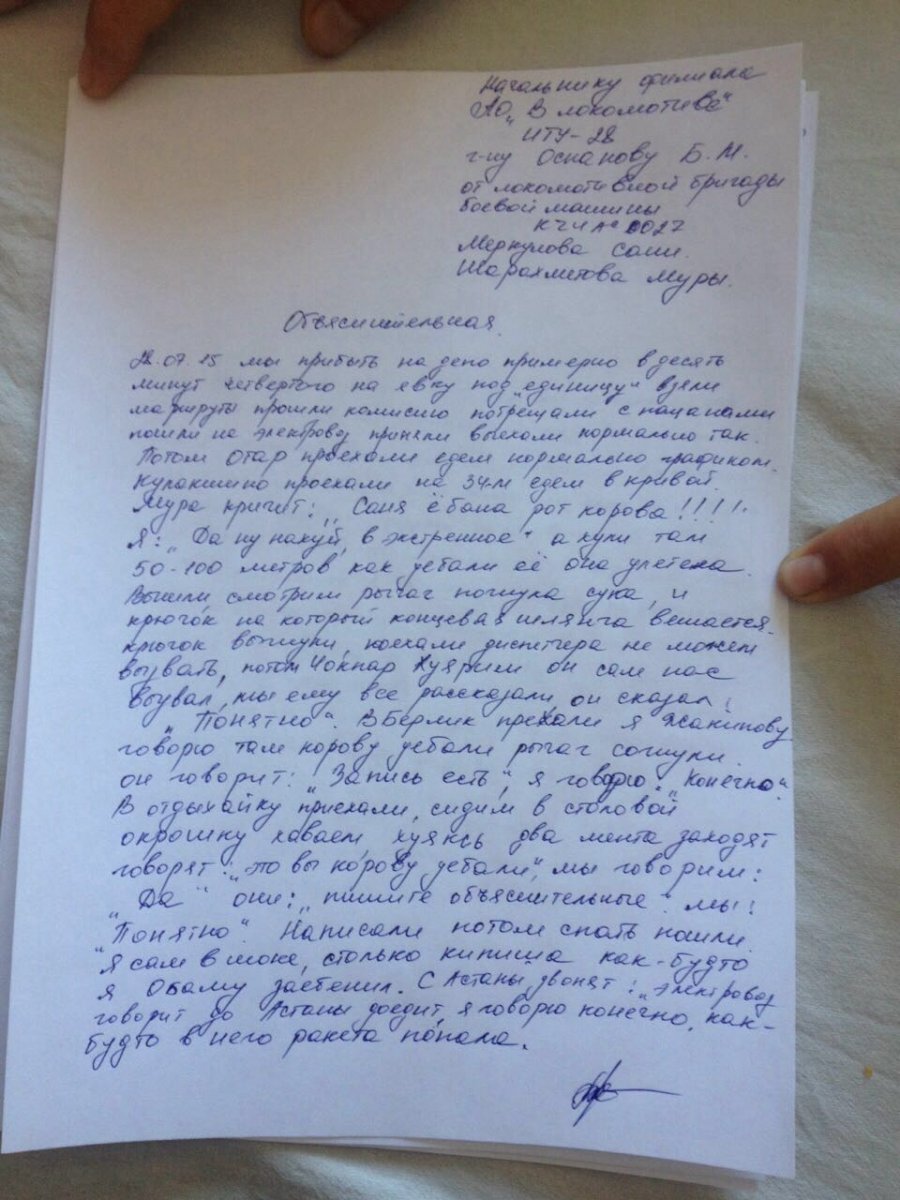 Начальнику филиала
АО „В локомотиве“
ИТУ-28
г-ну Оспанову Б.М.
от локомотивной бригады
боевой машины
KZ4Ac 0027
Меркулова Сани.
Шарахметова Муры.
Объяснительная.
28.07.15 мы прибыть на депо примерно в десять
минут четвертого на явку под „единицу“ взели
маршруты прошли комисию потрещали с пацанами
пошли на электровоз приняли выехали нормально так.
Потом Отар проехали едем нормально графиком.
Кулакшино проехали на 34-м едем в кривой.
Мура кричит: „Саня ёбана рот корова!!!!“
Я: „Да ну нахуй, в экстренное“ а хули там
50-100 метров как уебали её она улетела.
Вышли смотрим рычаг погнула сука, и
крючок на который концевая шлянга вешается.
крючок выгнули, поехали диспетчера не можем
вызвать, потом Чокпар Хуярим он сам нас
вызвал, мы ему все рассказали, он сказал:
„Понятно“. В Берлик прехали я Жакипову
говорю там корову уебали рычаг согнули.
он говорит: „Запись есть“, я говорю: „Конечно“.
В отдыхайку приехали, сидим в столовой
окрошку хаваем хуяксь два мента заходят
говорят: „это вы корову уебали“, мы говорим:
„Да“ они: „пишите объяснительные“. мы:
„Понятно“. Написали потом спать пошли.
Я сам в шоке, столько кипиша как-будто
я Обаму заебенил. С Астаны звонят: „электровоз
говорит до Астаны доедит, я говорю конечно, как-
будто в него ракета попала.